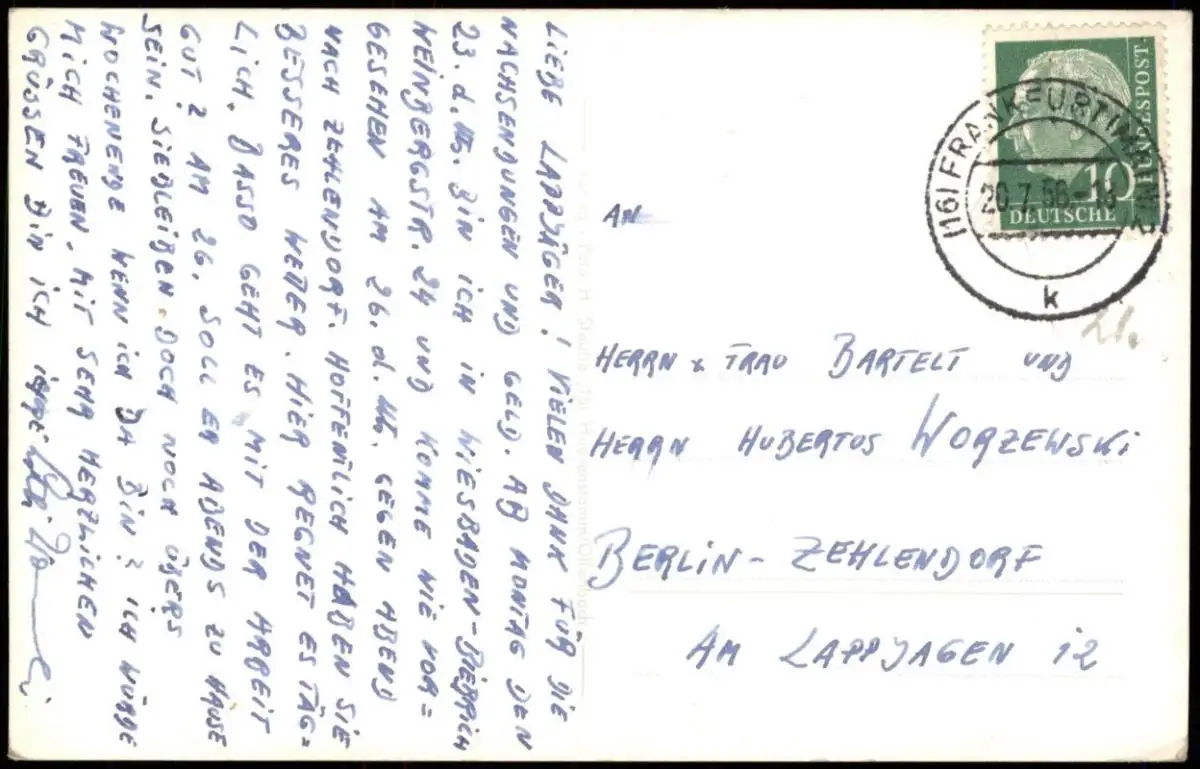 LIEBE LAPPJÄGER! VIELEN DANK FÜR DIE
NACHSENDUNGEN UND GELD. AB MONTAG DEN
23. d. Mts. BIN ICH IN WIESBADEN-BIEBRICH
WEINBERGSTR. 24 UND KOMME WIE VOR=
GESEHEN AM 26. d. Mts. GEGEN ABEND
NACH ZEHLENDORF. HOFFENTLICH HABEN SIE
BESSERES WETTER. HIER REGNET ES TÄG=
LICH. BASSO GEHT ES MIT DER ARBEIT
GUT? AM 26. SOLL ER ABENDS ZU HAUSE
SEIN. SIE BLEIBEN DOCH NOCH ÜBERS
WOCHENENDE WENN ICH DA BIN? ICH WÜRDE
MICH FREUEN. MIT SEHR HERZLICHEN
GRÜSSEN BIN ICH IHRE
BUNDESPOST
10
DEUTSCHE
(16) FRANKFURT (MAIN) 2
20.7.56.-13
k
AN
HERRN & FRAU BARTELT UND
HERRN HUBERTUS WORZEWSKI
BERLIN-ZEHLENDORF
AM LAPPJAGEN 12